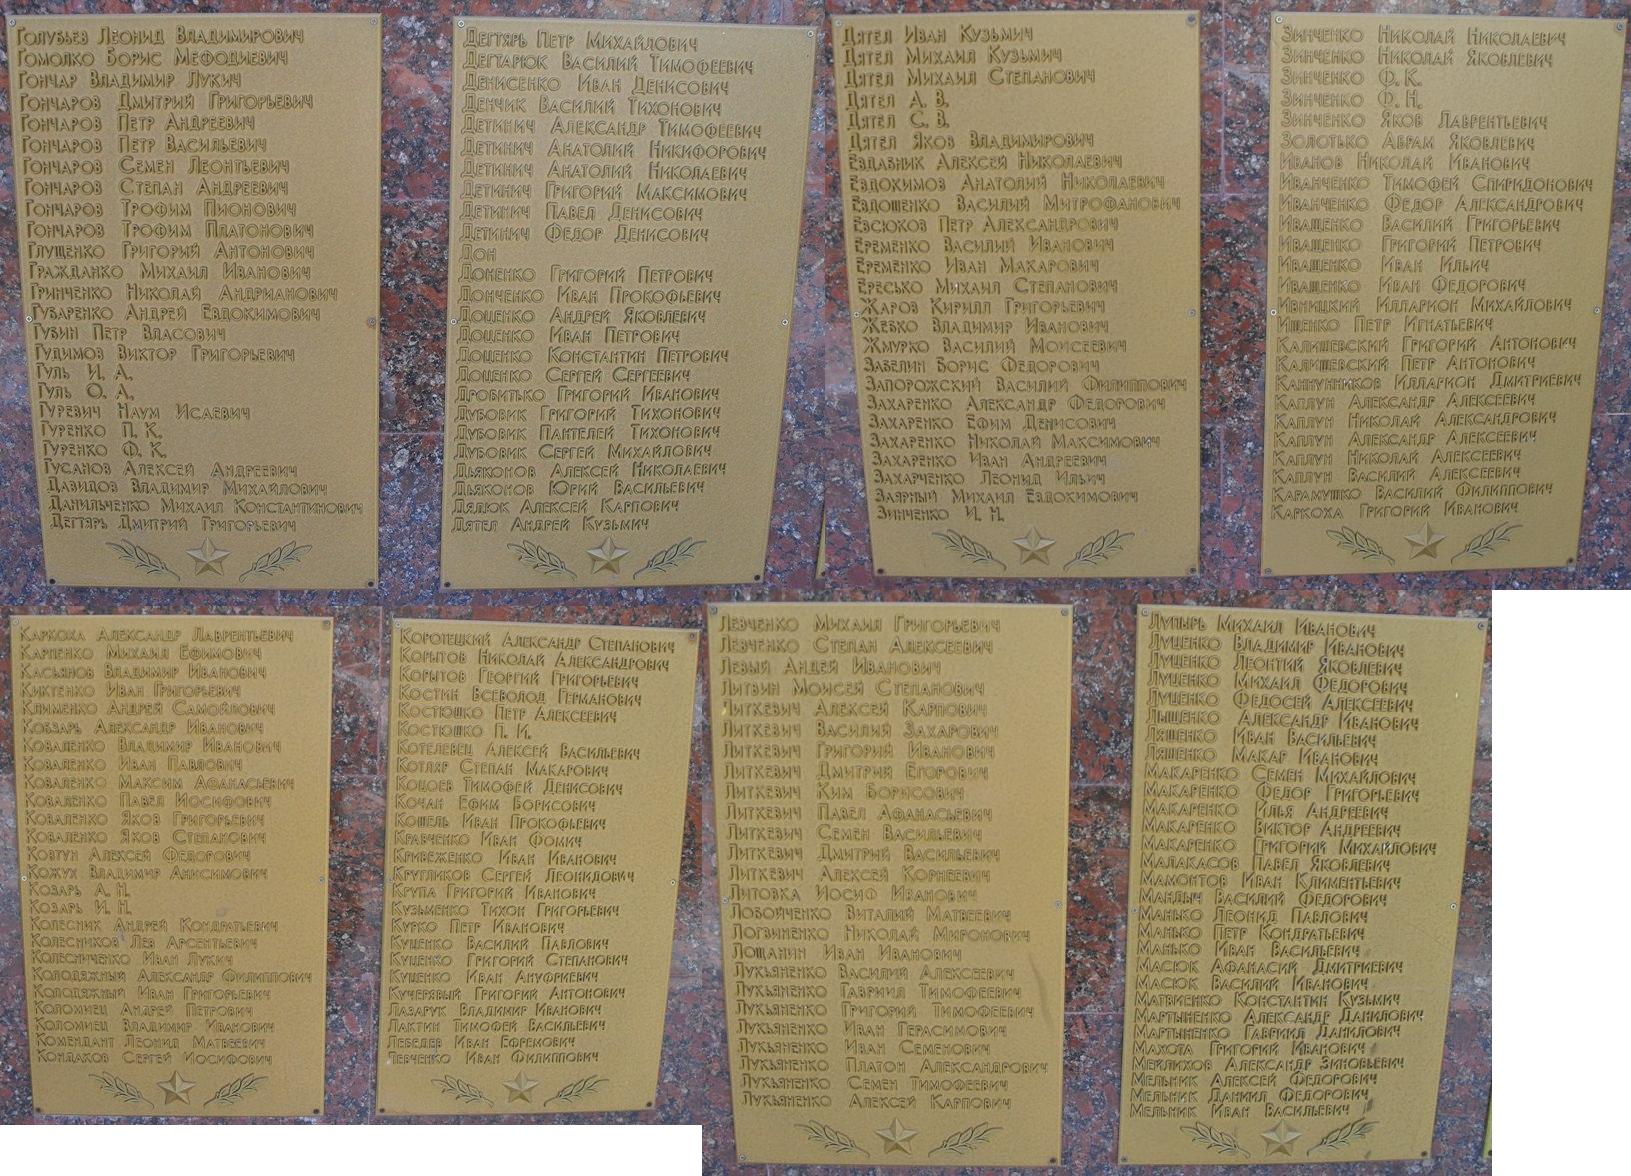 Голубьев Леонид Владимирович
Гомолко Борис Мефодиевич
Гончар Владимир Лукич
Гончаров Дмитрий Григорьевич
Гончаров Петр Андреевич
Гончаров Петр Васильевич
Гончаров Семен Леонтьевич
Гончаров Степан Андреевич
Гончаров Трофим Пионович
Гончаров Трофим Платонович
Глущенко Григорий Антонович
Гражданко Михаил Иванович
Гринченко Николай Андрианович
Губаренко Андрей Евдокимович
Губин Петр Власович
Гудимов Виктор Григорьевич
Гуль И. А.
Гуль О. А.
Гуревич Наум Исаевич
Гуренко П. К.
Гуренко Ф. К.
Гусанов Алексей Андреевич
Давидов Владимир Михайлович
Данильченко Михаил Константинович
Дегтярь Дмитрий Григорьевич
Дегтярь Петр Михайлович
Дегтарюк Василий Тимофеевич
Денисенко Иван Денисович
Денчик Василий Тихонович
Детинич Александр Тимофеевич
Детинич Анатолий Никифорович
Детинич Анатолий Николаевич
Детинич Григорий Максимович
Детинич Павел Денисович
Детинич Федор Денисович
Дон
Доненко Григорий Петрович
Донченко Иван Прокофьевич
Доценко Андрей Яковлевич
Доценко Иван Петрович
Доценко Константин Петрович
Доценко Сергей Сергеевич
Дробитько Григорий Иванович
Дубовик Григорий Тихонович
Дубовик Пантелей Тихонович
Дубовик Сергей Михайлович
Дьяконов Алексей Николаевич
Дьяконов Юрий Васильевич
Дядюк Алексей Карпович
Дятел Андрей Кузьмич
Дятел Иван Кузьмич
Дятел Михаил Кузьмич
Дятел Михаил Степанович
Дятел А. В.
Дятел С. В.
Дятел Яков Владимирович
Евдабник Алексей Николаевич
Евдокимов Анатолий Николаевич
Евдошенко Василий Митрофанович
Евсюков Петр Александрович
Еременко Василий Иванович
Еременко Иван Макарович
Ересько Михаил Степанович
Жаров Кирилл Григорьевич
Жебко Владимир Иванович
Жмурко Василий Моисеевич
Забелин Борис Федорович
Запорожский Василий Филиппович
Захаренко Александр Федорович
Захаренко Ефим Денисович
Захаренко Николай Максимович
Захаренко Иван Андреевич
Захарченко Леонид Ильич
Заярный Михаил Евдокимович
Зинченко И. Н.
Зинченко Николай Николаевич
Зинченко Николай Яковлевич
Зинченко Ф. К.
Зинченко Ф. Н.
Зинченко Яков Лаврентьевич
Золотько Абрам Яковлевич
Иванов Николай Иванович
Иванченко Тимофей Спиридонович
Иванченко Федор Александрович
Иващенко Василий Григорьевич
Иващенко Григорий Петрович
Иващенко Иван Ильич
Иващенко Иван Федорович
Ивницкий Илларион Михайлович
Ищенко Петр Игнатьевич
Калишевский Григорий Антонович
Калишевский Петр Антонович
Каннунников Илларион Дмитриевич
Каплун Александр Алексеевич
Каплун Николай Александрович
Каплун Александр Алексеевич
Каплун Николай Алексеевич
Каплун Василий Алексеевич
Карамушко Василий Филиппович
Каркоха Григорий Иванович
Каркоха Александр Лаврентьевич
Карпенко Михаил Ефимович
Касьянов Владимир Иванович
Киктенко Иван Григорьевич
Клименко Андрей Самойлович
Кобзарь Александр Иванович
Коваленко Владимир Иванович
Коваленко Иван Павлович
Коваленко Максим Афанасьевич
Коваленко Павел Иосифович
Коваленко Яков Григорьевич
Коваленко Яков Степанович
Ковтун Алексей Федорович
Кожух Владимир Анисимович
Козарь А. Н.
Козарь И. Н.
Колесник Андрей Кондратьевич
Колесников Лев Арсентьевич
Колесниченко Иван Лукич
Колодяжный Александр Филиппович
Колодяжный Иван Григорьевич
Коломиец Андрей Петрович
Коломиец Владимир Иванович
Комендант Леонид Матвеевич
Кондаков Сергей Иосифович
Коротецкий Александр Степанович
Корытов Николай Александрович
Корытов Георгий Григорьевич
Костин Всеволод Германович
Костюшко Петр Алексеевич
Костюшко П. И.
Котелевец Алексей Васильевич
Котляр Степан Макарович
Коцоев Тимофей Денисович
Кочан Ефим Борисович
Кошель Иван Прокофьевич
Кравченко Иван Фомич
Кривеженко Иван Иванович
Кругликов Сергей Леонидович
Крупа Григорий Иванович
Кузьменко Тихон Григорьевич
Курко Петр Иванович
Куценко Василий Павлович
Куценко Григорий Степанович
Куценко Иван Ануфриевич
Кучерявый Григорий Антонович
Лазарук Владимир Иванович
Лактин Тимофей Васильевич
Лебедев Иван Ефремович
Левченко Иван Филиппович
Левченко Михаил Григорьевич
Левченко Степан Алексеевич
Левый Андей Иванович
Литвин Моисей Степанович
Литкевич Алексей Карпович
Литкевич Василий Захарович
Литкевич Григорий Иванович
Литкевич Дмитрий Егорович
Литкевич Ким Борисович
Литкевич Павел Афанасьевич
Литкевич Семен Васильевич
Литкевич Дмитрий Васильевич
Литкевич Алексей Корнеевич
Литовка Иосиф Иванович
Лобойченко Виталий Матвеевич
Логвиненко Николай Миронович
Лощанин Иван Иванович
Лукьяненко Василий Алексеевич
Лукьяненко Гавриил Тимофеевич
Лукьяненко Григорий Тимофеевич
Лукьяненко Иван Герасимович
Лукьяненко Иван Семенович
Лукьяненко Платон Александрович
Лукьяненко Семен Тимофеевич
Лукьяненко Алексей Карпович
Лупырь Михаил Иванович
Луценко Владимир Иванович
Луценко Леонтий Яковлевич
Луценко Михаил Федорович
Луценко Федосей Алексеевич
Лыщенко Александр Иванович
Ляшенко Иван Васильевич
Ляшенко Макар Иванович
Макаренко Семен Михайлович
Макаренко Федор Григорьевич
Макаренко Илья Андреевич
Макаренко Виктор Андреевич
Макаренко Григорий Михайлович
Малакасов Павел Яковлевич
Мамонтов Иван Климентьевич
Мандыч Василий Федорович
Манько Леонид Павлович
Манько Петр Кондратьевич
Манько Иван Васильевич
Масюк Афанасий Дмитриевич
Масюк Василий Иванович
Матвиенко Константин Кузьмич
Мартыненко Александр Данилович
Мартыненко Гавриил Данилович
Махота Григорий Иванович
Мейлихов Александр Зиновьевич
Мельник Алексей Федорович
Мельник Даниил Федорович
Мельник Иван Васильевич